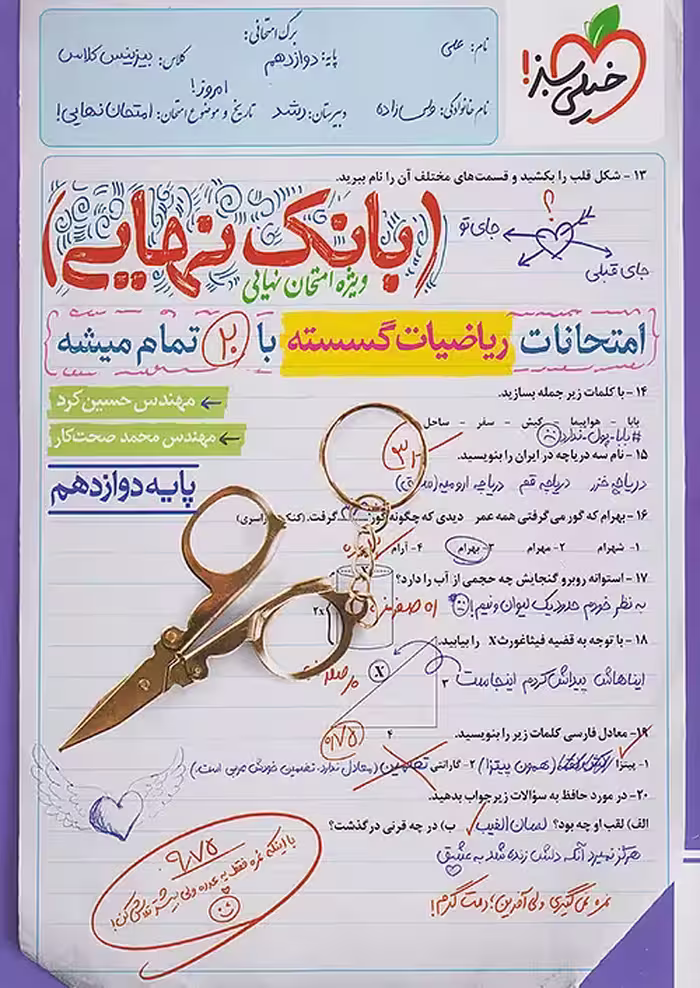 برگ امتحانی:
نام: علی
پایه: دوازدهم
کلاس: بیزینس کلاس
امروز!
نام خانوادگی: ولی زاده
دبیرستان: رشد
تاریخ و موضوع امتحان: امتحان نهایی!
خیلی سبز!
۱۳ - شکل قلب را بکشید و قسمت‌های مختلف آن را نام ببرید.
؟
جای تو
جای قبلی
(بانک نهایی)
ویژه امتحان نهایی
امتحانات ریاضیات گسسته با ۲۰ تمام میشه
مهندس حسین کرد
مهندس محمد صحت‌کار
پایه دوازدهم
۱۴ - با کلمات زیر جمله بسازید.
بابا - هواپیما - کیش - سفر - ساحل
#بابا-پول-ندارد
۱۵ - نام سه دریاچه در ایران را بنویسید.
دریاچه خزر دریاچه قم دریاچه ارومیه
۱۶ - بهرام که گور می‌گرفتی همه عمر دیدی که چگونه گور گرفت.
۱- شهرام ۲- مهرام ۳- بهرام ۴- آرام
۱۷ - استوانه روبرو گنجایش چه حجمی از آب را دارد؟
به نظر خودم حدود یک لیوان و نیم!
2x
۱۸ - با توجه به قضیه فیثاغورث X را بیابید.
ایناهاش پیداش کردم اینجاست
X
۳
۴
۱۹- معادل فارسی کلمات زیر را بنویسید.
۱- پیتزا (همون پیتزا) ۲- گارانتی تضمین (معادل ندارد. تضمین خودش عربی است.)
۲۰- در مورد حافظ به سؤالات زیر جواب بدهید.
الف) لقب او چه بود؟ لسان الغیب ب) در چه قرنی درگذشت؟
هرگز نمیرد آنکه دلش زنده شد به عشق
نمره نمی‌گیری ولی آفرین؛ دمت گرم!
۹.۷۵
با اینکه نمره فقط یه عدده ولی بیشتر تلاش کن!